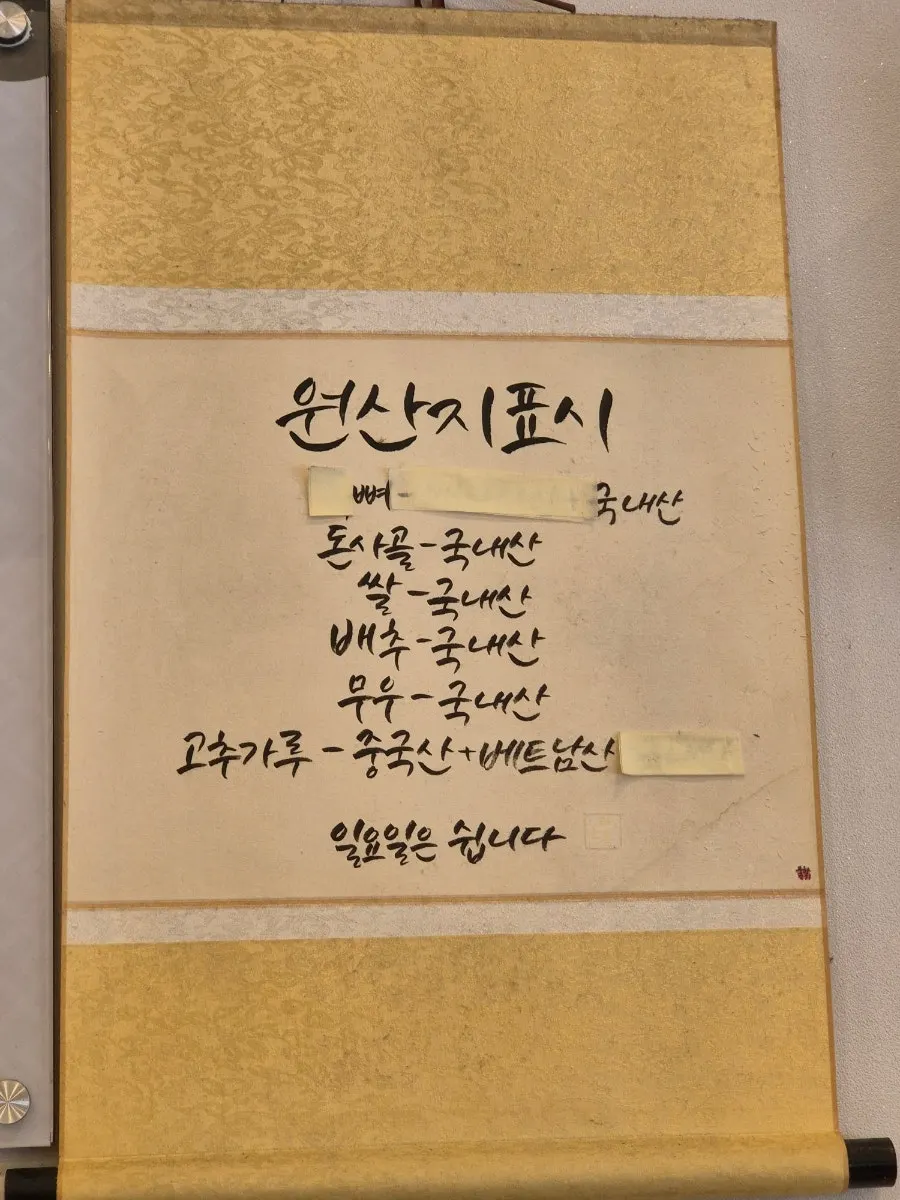 원산지표시
뼈 - 국내산
돈사골 - 국내산
쌀 - 국내산
배추 - 국내산
무우 - 국내산
고추가루 - 중국산 + 베트남산
일요일은 쉽니다